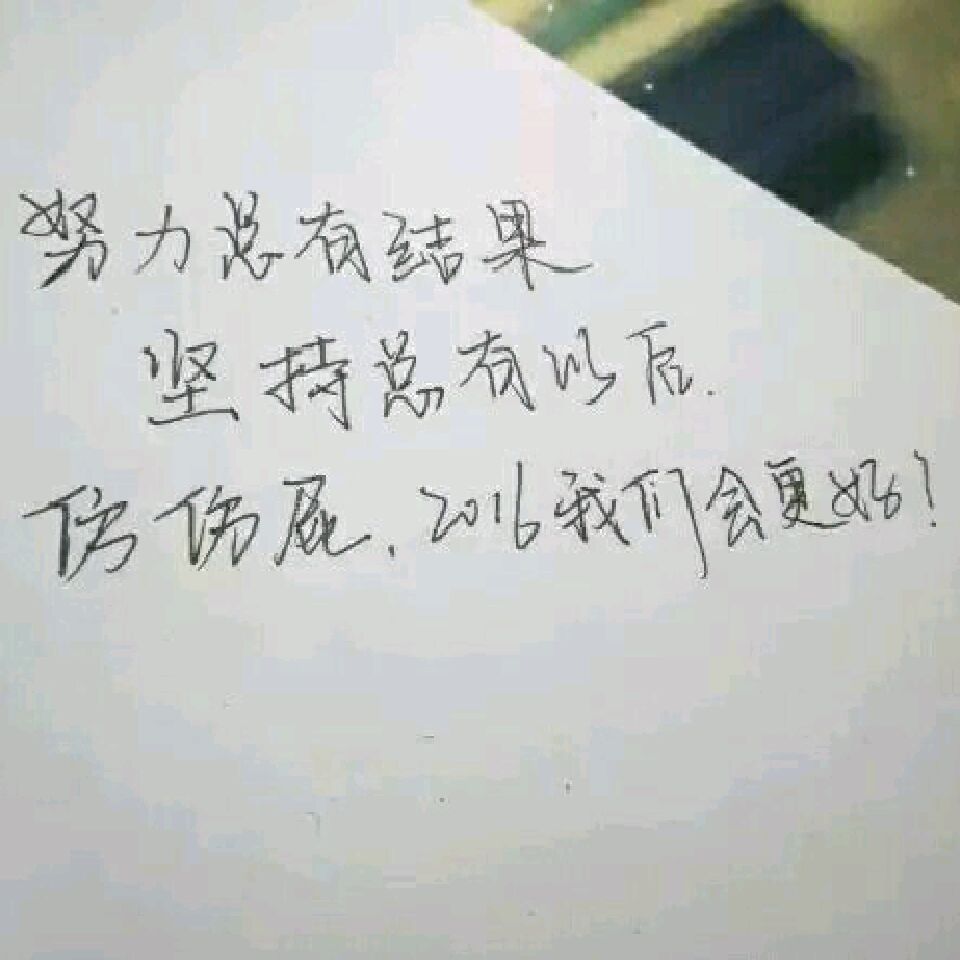 努力总有结果
坚持总有以后.
伤伤屁, 2016我们会更好!